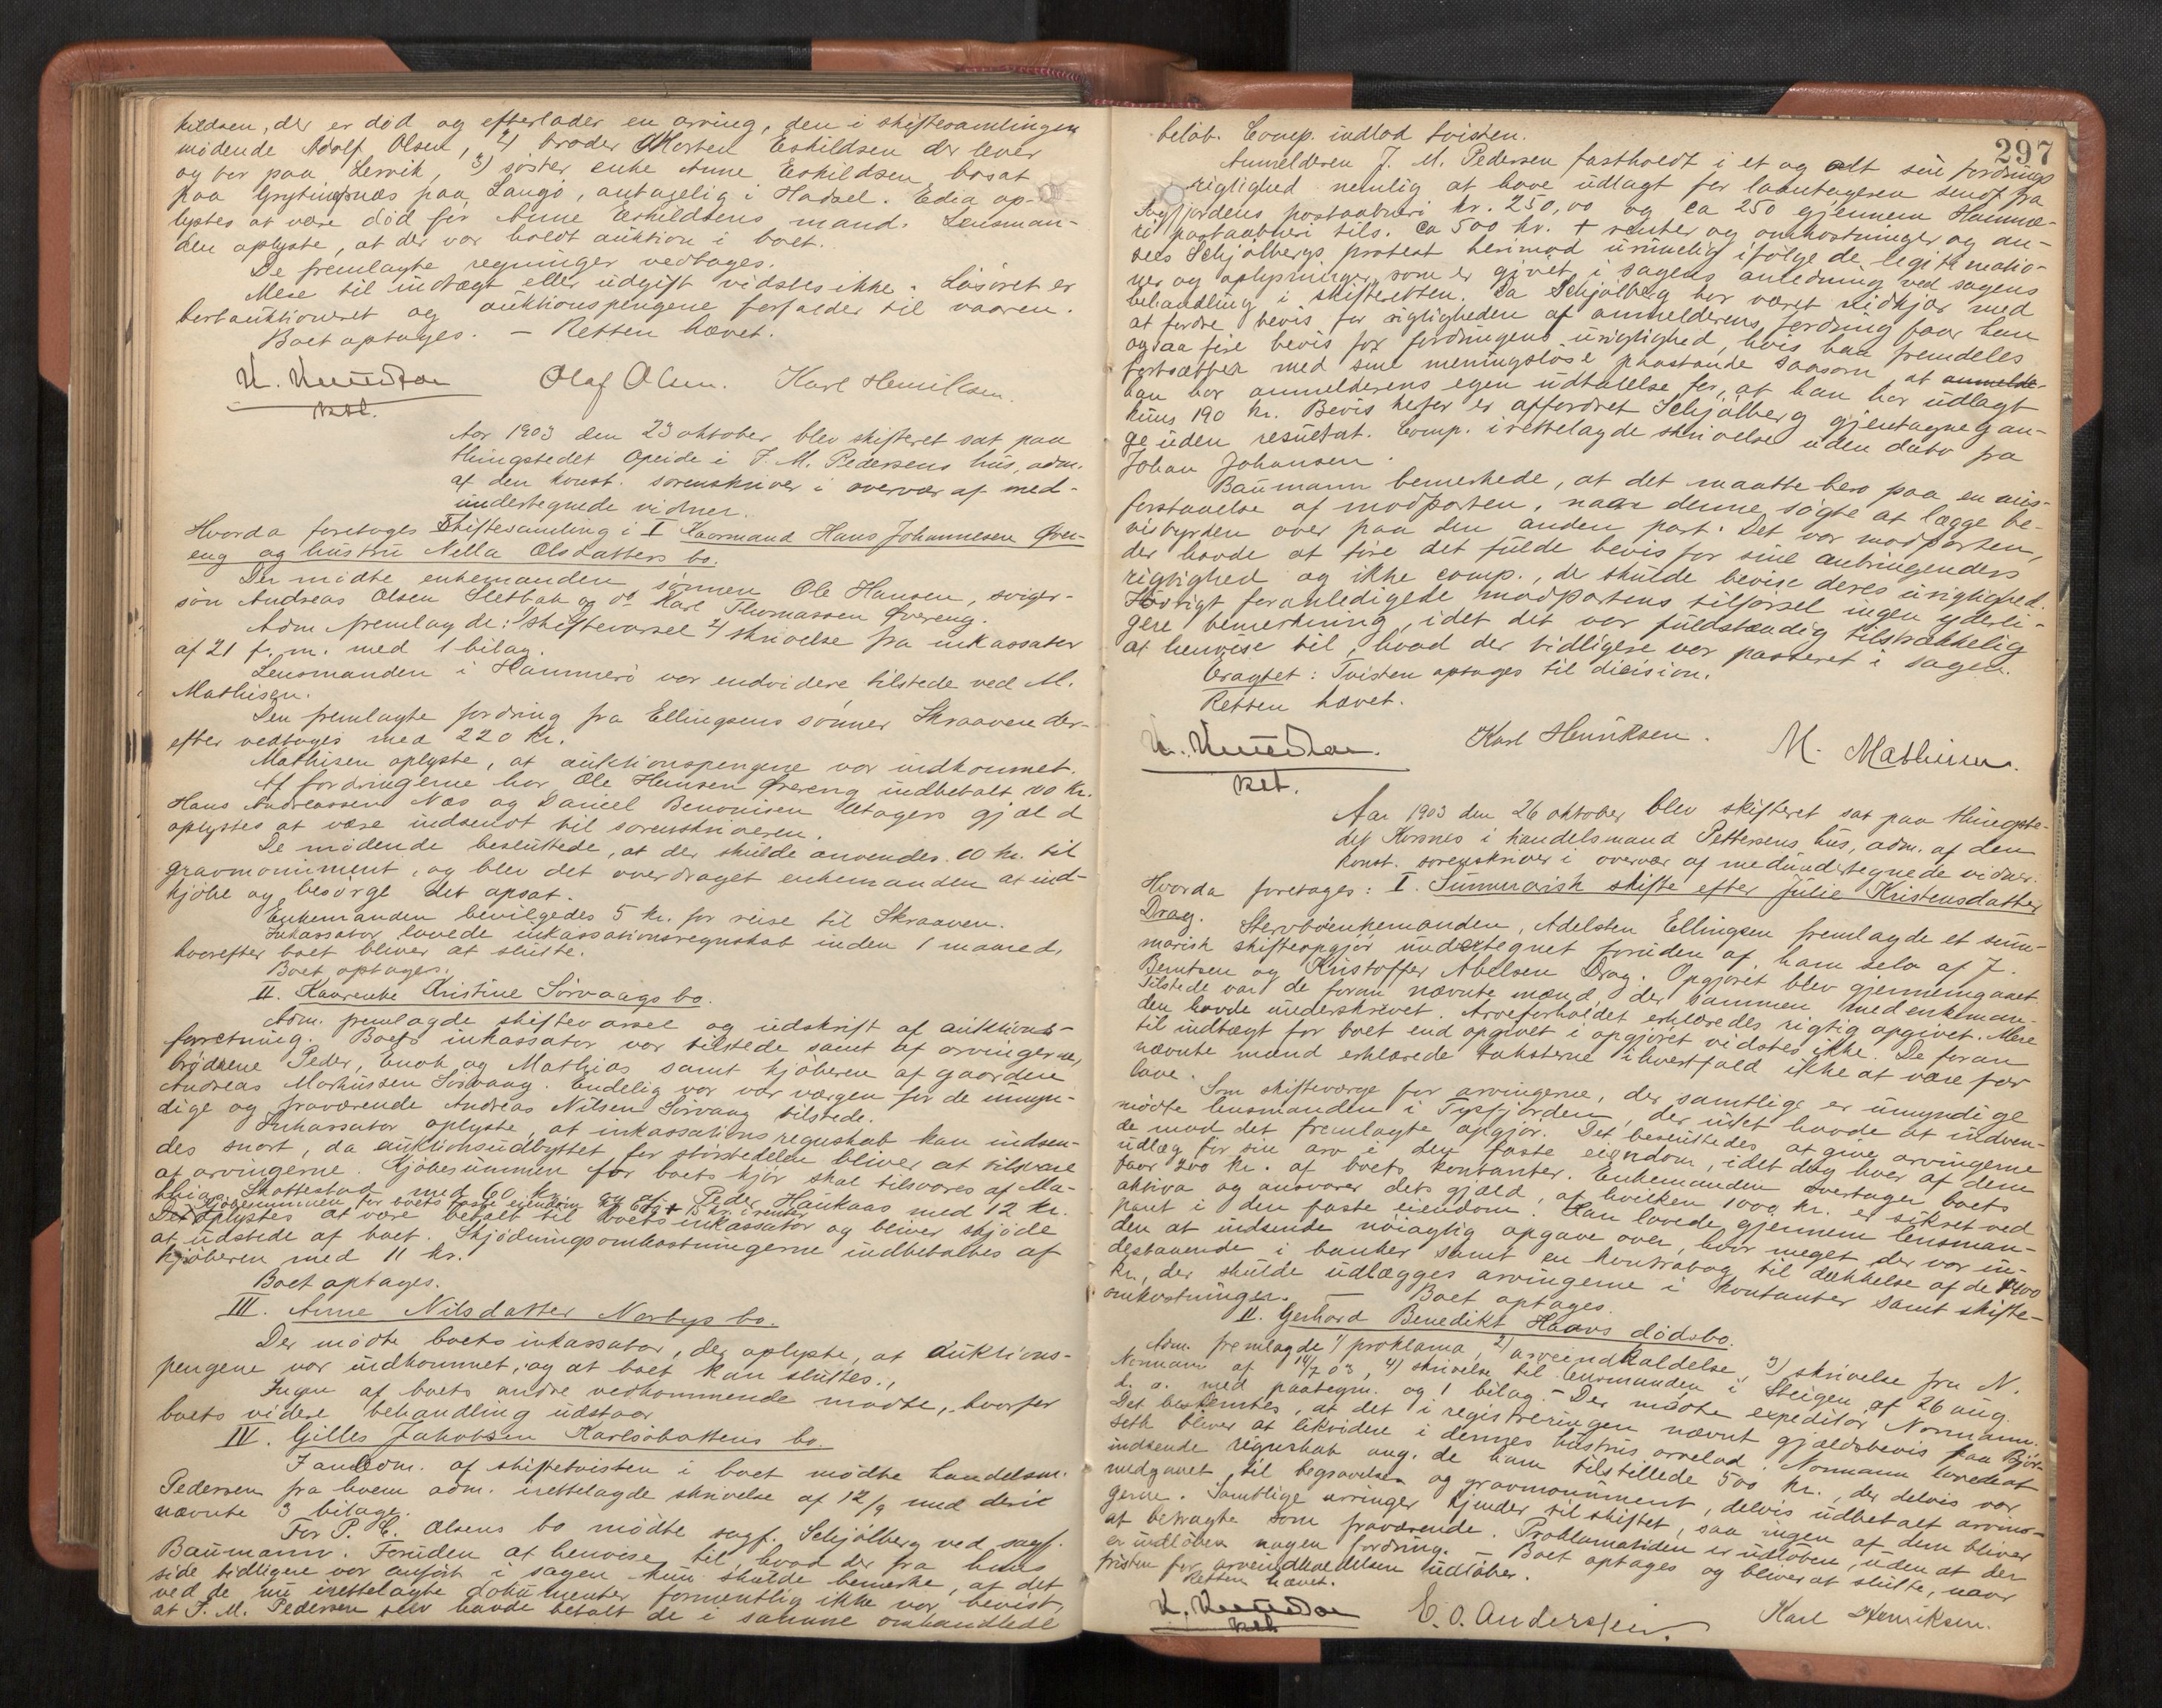 kildsen, der er död og efterlader en arving, den i skiftesamlingen
mödende Adolf Olsen, 2) broder Morten Eskildsen der lever
og bor paa Lervik, 3) söster, enke Anne Eskildsen bosat
paa Grytingnæs paa Langö, antagelig i Hadsel. Edia op-
lystes at være död för Anne Eskildsens mand. Lensman-
den oplyste, at der var holdt auktion i boet.
De fremlagte regninger vedtages.
Mere til indtægt eller udgift vidstes ikke. Lösöret er
bortauktioneret og auktionspengene forfalder til vaaren.
Boet optages. — Retten hævet.
Olaf Olsen. Karl Henriksen.
kst.
Aar 1903 den 23 oktober blev skifteret sat paa
thingstedet Opeide i J. M. Pedersens hus, adm.
af den konst. sorenskriver i overvær af med-
undertegnede vidner.
Hvorda foretoges Skiftesamling i I Kaarmand Hans Johannesen Øver-
eng og hustru Nella Olsdatters bo.
Der mödte enkemanden sönnen Ole Hansen, sviger-
sön Andreas Olsen Sletbak og do Karl Thomassen Øvereng.
Adm fremlagde: 1) skiftevarsel 2) skrivelse fra inkassator
af 21 f. m. med 1 bilag.
Lensmanden i Hammerö var endvidere tilstede ved M.
Mathisen.
Den fremlagte fordring fra Ellingsens sönner Skraaven der-
efter vedtoges med 220 kr.
Mathisen oplyste, at auktionspengene var indkommet.
Af fordringerne har Ole Hansen Øvereng indbetalt 10 kr.
Hans Andreassen Næs og Daniel Benonisen Utagers gjæld
oplystes at være indsendt til sorenskriveren.
De mödende besluttede, at der skulde anvendes 60 kr. til
gravmoniment, og blev det overdraget enkemanden at ind-
kjöbe og besörge det opsat.
Enkemanden bevilgedes 5 kr. for reise til Skraaven.
Inkassator lovede inkassationsregnskab inden 1 maaned,
hvorefter boet bliver at slutte.
Boet optages.
II. Kaarenke Kristine Sörvaags bo.
Adm. fremlagde skiftevarsel og udskrift af auktions-
forretning. Boets inkassator var tilstede samt af arvingerne,
brödrene Peder, Enok og Mathias samt kjöberen af gaarden
Andreas Markussen Sörvaag. Endelig var vor værgen for de umyn-
dige og fraværende Andreas Nilsen Sörvaag tilstede.
Inkassator oplyste, at inkassations regnskab kan indsen-
des snart, da auktionsudbyttet for störstedelen bliver at tilsvare
af arvingerne. Kjöbesummen for boets kjör skal tilsvares af Ma-
thias Skattestad med 60 kr. og af Peder Haukaas med 12 kr.
Kjöbesummen for boets faste eiendom + 15 kr. i renter
Det oplystes at være betalt til boets inkassator og bliver skjöde
at udstede af boet. Skjödningsomkostningerne indbetaltes af
kjöberen med 11 kr.
Boet optages.
III. Anne Nilsdatter Norbys bo.
Der mödte boets inkassator, der oplyste, at auktions-
pengene var indkommet, og at boet kan sluttes.
Ingen af boets andre vedkommende mödte, hvorfor
boets videre behandling udstaar.
IV. Gilles Jakobsen Karlsöbottens bo.
I anledn. af skiftetvisten i boet mödte handelsm.
Pedersen fra hvem adm. irettelagde skrivelse af 12/9 med deri
nævnte 3 bilage.
For P. C. Olsens bo mödte sagf. Schjölberg ved sagf.
Baumann. Foruden at henvise til, hvad der fra hans
side tidligere var anfört i sagen kun skulde bemerke, at det
ved de nu irettelagte dokumenter formentlig ikke var bevist,
at J. M. Pedersen selv havde betalt de i samme omhandlede
297
belöb. Comp. indlod tvisten.
Anmelderen J. M. Pedersen fastholdt i et og alt sin fordrings
rigtighed nemlig at have udlagt for laantageren sendt fra
fjordens postaabneri kr. 250,00 og ca 250 gjennem Hamme-
rö postaabneri tils. ca 500 kr. + renter og omkostninger og an-
sees Schjölbergs protest herimod urimelig ifölge de legitimatio-
ner og oplysninger som er givet i sagens anledning ved sagens
behandling i skifteretten. Da Schjölberg har været nidkjær med
at fordre bevis for rigtigheden af anmelderens fordring faar han
ogsaa före bevis for fordringens urigtighed, hvis han fremdeles
fortsætter med sine meningslöse paastande saasom, at anmelde-
han har anmelderens egen udtalelse for, at han har udlagt
kuns 190 kr. Bevis herfor er affordret Schjölberg gjentagne gan-
ge uden resultat. Comp. irettelagde skrivelse uden dato fra
Johan Johansen.
Baumann bemerkede, at det maatte bero paa en mis-
forstaaelse af modparten, naar denne sögte at lægge be-
visbyrden over paa den anden part. Det var modparten,
der havde at före det fulde bevis for sine anbringenders
rigtighed og ikke comp., der skulde bevise deres urigtighed.
Forövrigt foranledigede modpartens tilförsel ingen yderli-
gere bemerkning, idet det var fuldstændig tilstrækkelig
at henvise til, hvad der tidligere var passeret i sagen.
Eragtet: Tvisten optages til dicision.
Retten hævet.
Karl Henriksen. M. Mathisen.
kst.
Aar 1903 den 26 oktober blev skifteret sat paa thingste-
det Korsnes i handelsmand Pettersens hus, adm. af den
konst. sorenskriver i overvær af medundertegnede vidner.
Hvorda foretoges: I. Summarisk skifte efter Julie Kristensdatter
Drag. Stervboenkemanden, Adelsten Ellingsen fremlagde et sum-
marisk skifteopgjör undertegnet foruden af ham selv af J.
Berntsen og Kristoffer Abelsen Drag. Opgjöret blev gjennemgaaet.
Tilstede var de foran nævnte mænd, der sammen med enkeman-
den havde underskrevet. Arveforholdet erklæredes rigtig opgivet. Mere
til indtægt for boet end opgivet i opgjöret vidstes ikke. De foran
nævnte mænd erklærede taksterne ihvertfald ikke at være for
lave.
Som skifteværge for arvingerne, der samtlige er umyndige
mödte lensmanden i Tysfjorden, der intet havde at indven-
de mod det fremlagte opgjör. Det besluttedes at give arvingerne
udlæg for sin arv i den faste eiendom, idet dog hver af dem
faar 200 kr. af boets kontanter. Enkemanden overtager boets
aktiva og ansvarer dets gjæld, af hvilken 1000 kr. er sikret ved
pant i den faste eiendom. Han lovede gjennem lensman-
den at indsende nöiagtig opgave over, hvor meget der var in-
destaaende i banker samt en kontrabog til dækkelse af de 1400
kr., der skulde udlægges arvingerne i kontanter samt skifte-
omkostninger. — Boet optages.
II. Gerhard Benedikt Haavs dödsbo.
Adm. fremlagde 1) proklama, 2) arveindkaldelse, 3) skrivelse fra N.
Normann af 14/7 03, 4) skrivelse til lensmanden i Steigen af 26 aug.
d. a. med paategn. og 1 bilag. — Der mödte expeditör Normann.
Det bestemtes, at det i registreringen nævnt gjældsbevis paa Björ-
seth bliver at likvidere i dennes hustrus arvelod. Normann lovede at
indsende regnskab ang. de ham tilstillede 500 kr., der delvis var
medgaaet til begravelsen og gravmonument, delvis udbetalt arvin-
gerne. Samtlige arvinger kjender til skiftet, saa ingen af dem bliver
at betragte som fraværende. Proklamatiden er udlöben, uden at der
er indlöben nogen fordring. — Boet optages og bliver at slutte, naar
fristen for arveindkaldelsen udlöber.
Retten hævet.
E. O. Anderssen. Karl Henriksen.
kst